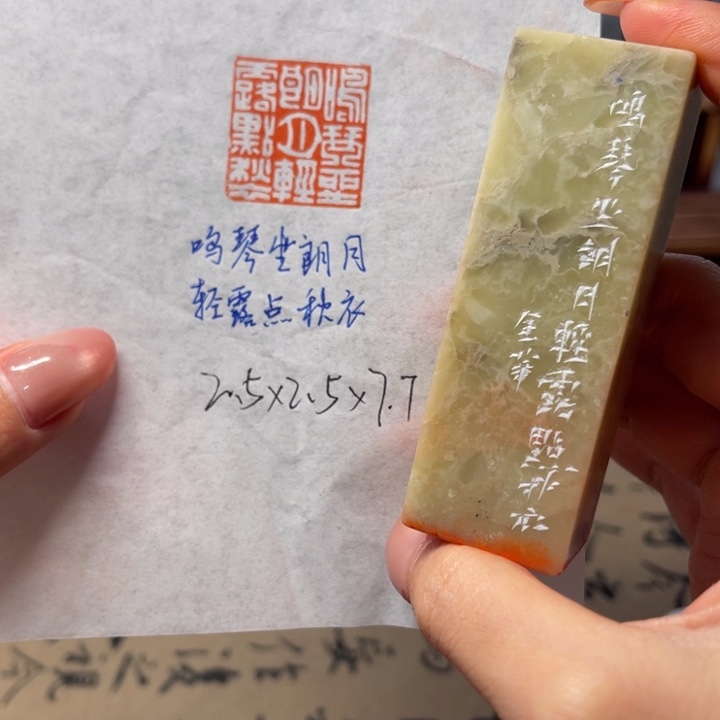 鳴琴坐
朗月輕
露點秋衣
鸣琴坐朗月
轻露点秋衣
2.5×2.5×7.7
鳴琴坐朗月輕露點秋衣